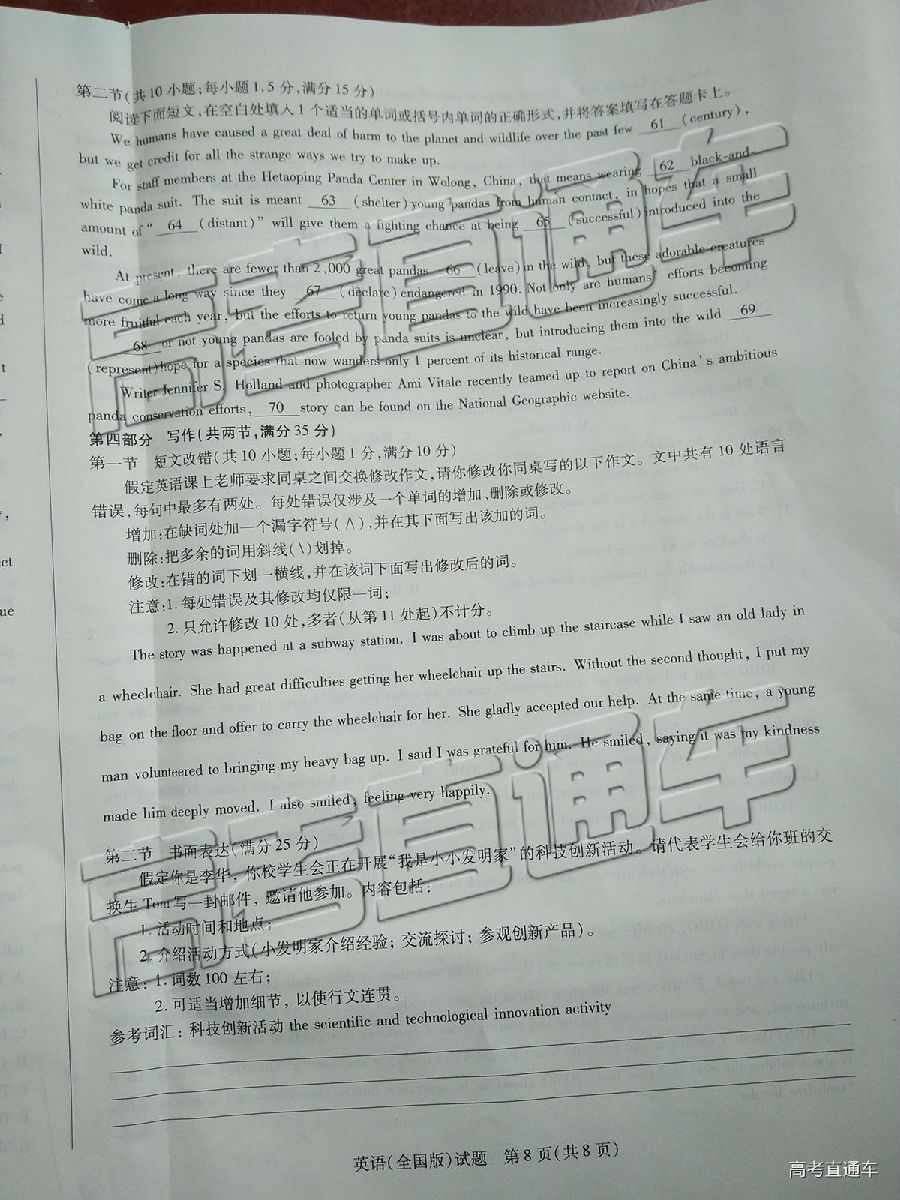 第二节(共10小题;每小题1.5分,满分15分)
阅读下面短文,在空白处填入1个适当的单词或括号内单词的正确形式,并将答案填写在答题卡上。
We humans have caused a great deal of harm to the planet and wildlife over the past few 61 (century),
but we get credit for all the strange ways we try to make up.
For staff members at the Hetaoping Panda Center in Wolong, China, that means wearing 62 black-and-
white panda suit. The suit is meant 63 (shelter) young pandas from human contact, in hopes that a small
amount of " 64 (distant)" will give them a fighting chance at being 65 (successful) introduced into the
wild.
At present, there are fewer than 2,000 great pandas 66 (leave) in the wild, but these adorable creatures
have come a long way since they 67 (declare) endangered in 1990. Not only are humans' efforts becoming
more fruitful each year, but the efforts to return young pandas to the wild have been increasingly successful.
68 or not young pandas are fooled by panda suits is unclear, but introducing them into the wild 69
(represent) hope for a species that now wanders only 1 percent of its historical range.
Writer Jennifer S. Holland and photographer Ami Vitale recently teamed up to report on China's ambitious
panda conservation efforts, 70 story can be found on the National Geographic website.
第四部分 写作(共两节,满分35分)
第一节 短文改错(共10小题;每小题1分,满分10分)
假定英语课上老师要求同桌之间交换修改作文,请你修改你同桌写的以下作文。文中共有10处语言
错误,每句中最多有两处。每处错误仅涉及一个单词的增加、删除或修改。
增加:在缺词处加一个漏字符号(∧),并在其下面写出该加的词。
删除:把多余的词用斜线(\)划掉。
修改:在错的词下划一横线,并在该词下面写出修改后的词。
注意:1. 每处错误及其修改均仅限一词;
2. 只允许修改10处,多者(从第11处起)不计分。
The story was happened at a subway station. I was about to climb up the staircase while I saw an old lady in
a wheelchair. She had great difficulties getting her wheelchair up the stairs. Without the second thought, I put my
bag on the floor and offer to carry the wheelchair for her. She gladly accepted our help. At the same time, a young
man volunteered to bringing my heavy bag up. I said I was grateful for him. He smiled, saying it was my kindness
made him deeply moved. I also smiled, feeling very happily.
第二节 书面表达(满分25分)
假定你是李华,你校学生会正在开展“我是小小发明家”的科技创新活动。请代表学生会给你班的交
换生Tom写一封邮件,邀请他参加。内容包括:
1. 活动时间和地点;
2. 介绍活动方式(小发明家介绍经验;交流探讨;参观创新产品)。
注意:1. 词数100左右;
2. 可适当增加细节,以使行文连贯。
参考词汇:科技创新活动 the scientific and technological innovation activity
英语(全国版)试题 第8页(共8页)
高考直通车
高考直通车
高考直通车